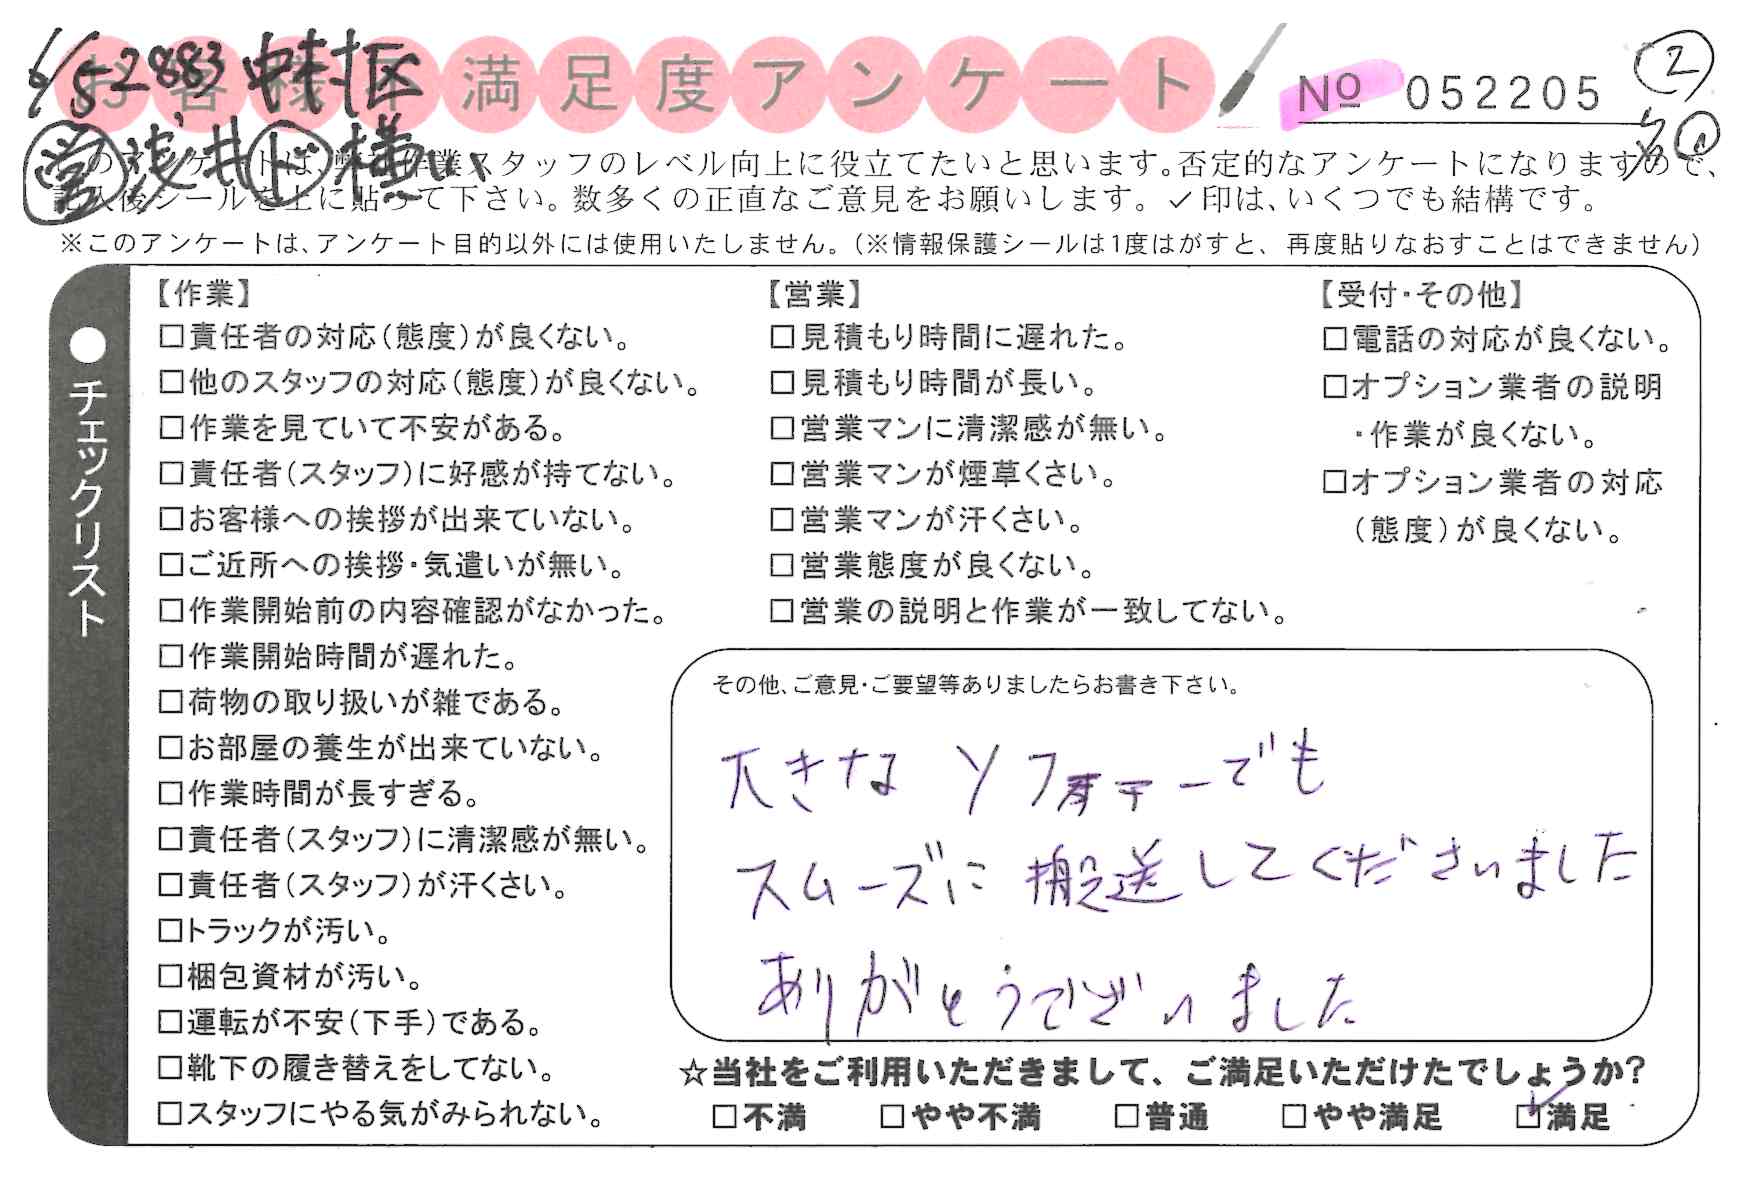 6/5 2883 中村区
お客様不満足度アンケート
№ 052205
②
営 浅井 ド 横い
のアンケートは、弊社作業スタッフのレベル向上に役立てたいと思います。否定的なアンケートになりますので、
記入後シールを上に貼って下さい。数多くの正直なご意見をお願いします。✓印は、いくつでも結構です。
※このアンケートは、アンケート目的以外には使用いたしません。(※情報保護シールは1度はがすと、再度貼りなおすことはできません)
●チェックリスト
【作業】
□責任者の対応(態度)が良くない。
□他のスタッフの対応(態度)が良くない。
□作業を見ていて不安がある。
□責任者(スタッフ)に好感が持てない。
□お客様への挨拶が出来ていない。
□ご近所への挨拶・気遣いが無い。
□作業開始前の内容確認がなかった。
□作業開始時間が遅れた。
□荷物の取り扱いが雑である。
□お部屋の養生が出来ていない。
□作業時間が長すぎる。
□責任者(スタッフ)に清潔感が無い。
□責任者(スタッフ)が汗くさい。
□トラックが汚い。
□梱包資材が汚い。
□運転が不安(下手)である。
□靴下の履き替えをしてない。
□スタッフにやる気がみられない。
【営業】
□見積もり時間に遅れた。
□見積もり時間が長い。
□営業マンに清潔感が無い。
□営業マンが煙草くさい。
□営業マンが汗くさい。
□営業態度が良くない。
□営業の説明と作業が一致してない。
【受付・その他】
□電話の対応が良くない。
□オプション業者の説明
・作業が良くない。
□オプション業者の対応
(態度)が良くない。
その他、ご意見・ご要望等ありましたらお書き下さい。
大きなソファーでも
スムーズに搬送してくださいました
ありがとうございました
☆当社をご利用いただきまして、ご満足いただけたでしょうか?
□不満 □やや不満 □普通 □やや満足 ☑満足